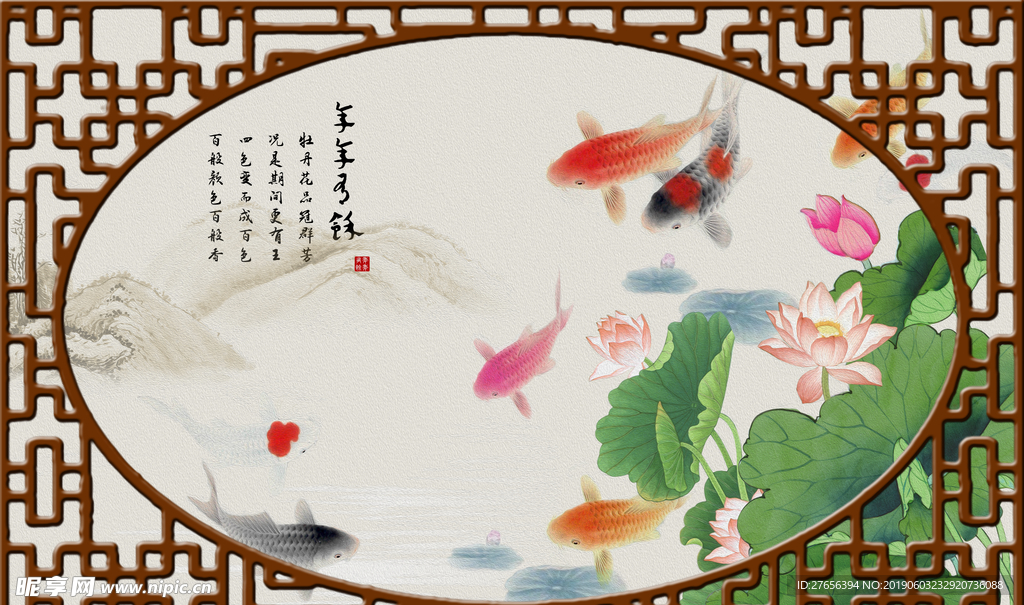 年年有餘
牡丹花品冠群芳
况是期间更有王
四色变而成百色
百般颜色百般香
昵享网 www.nipic.cn
ID:27656394 NO:20190603232920736088